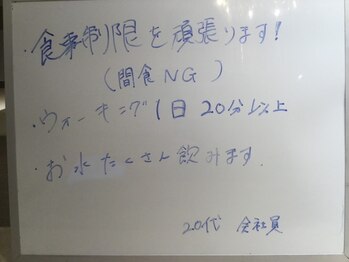 ・食事制限を頑張ります!
(間食NG)
・ウォーキング1日20分以上
・お水たくさん飲みます.
20代 会社員